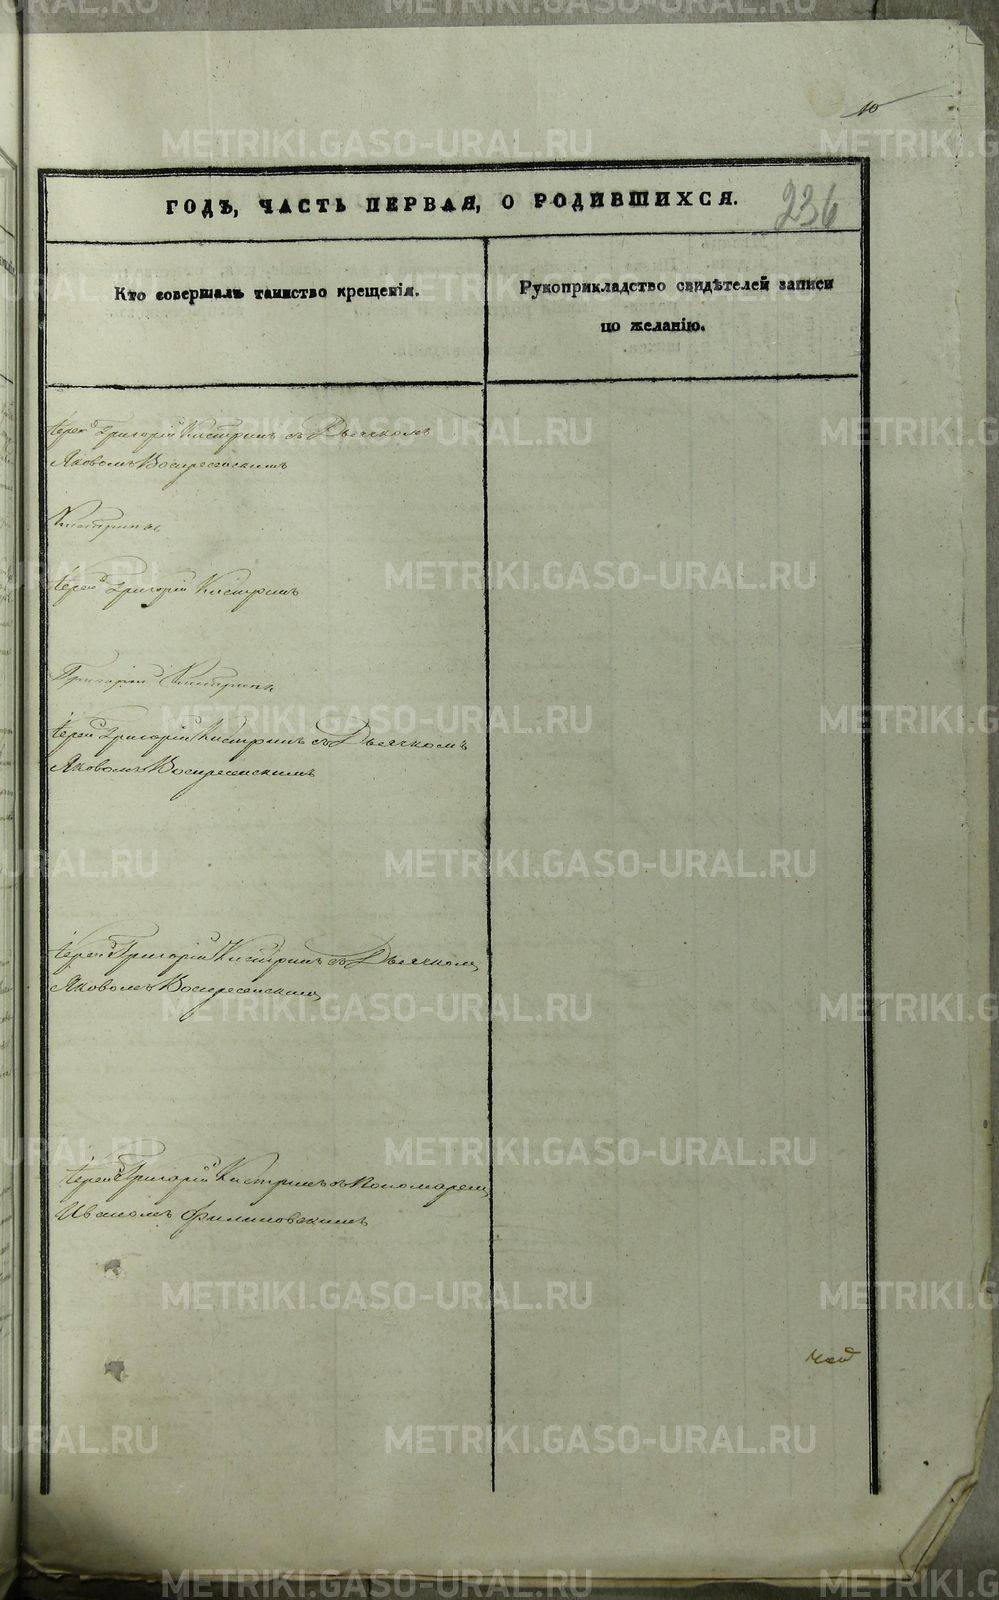 10
ГОДЪ, ЧАСТЬ ПЕРВАЯ, О РОДИВШИХСЯ. 236
Кто совершалъ таинство крещенія.
Рукоприкладство свидѣтелей записи
по желанію.
Іерей Григорій Кистринъ съ Дьячкомъ
Яковомъ Воскресенскимъ
Кистринъ
Іерей Григорій Кистринъ
Григорій Кистринъ
Іерей Григорій Кистринъ съ Дьячкомъ
Яковомъ Воскресенскимъ
Іерей Григорій Кистринъ съ Дьячкомъ
Яковомъ Воскресенскимъ
Іерей Григорій Кистринъ съ Пономаремъ
Иваномъ Филиповскимъ
METRIKI.GASO-URAL.RU